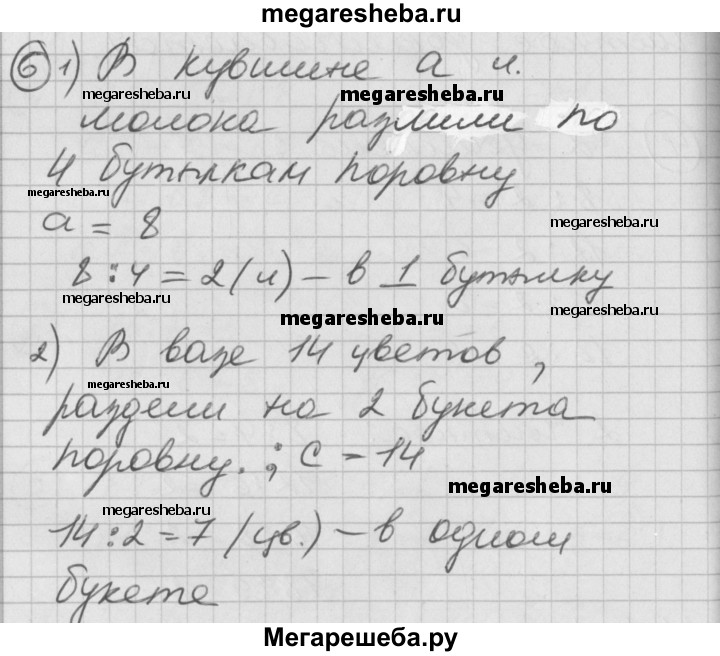 megaresheba.ru
6 1) В кувшине a л.
megaresheba.ru
megaresheba.ru
молока разлили по
4 бутылкам поровну
megaresheba.ru
a = 8
megaresheba.ru
8 : 4 = 2 (л) – в 1 бутылку
megaresheba.ru
megaresheba.ru
2) В вазе 14 цветов,
megaresheba.ru
раздели на 2 букета
поровну. ; c = 14
megaresheba.ru
megaresheba.ru
14 : 2 = 7 (цв.) – в одном
букете
Мегарешеба.ру